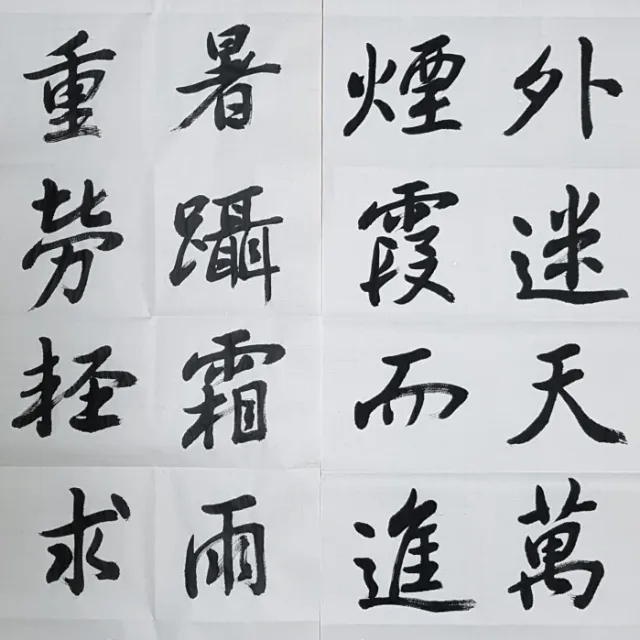 外迷天萬
煙霞而進
暑躡霜雨
重勞輕求